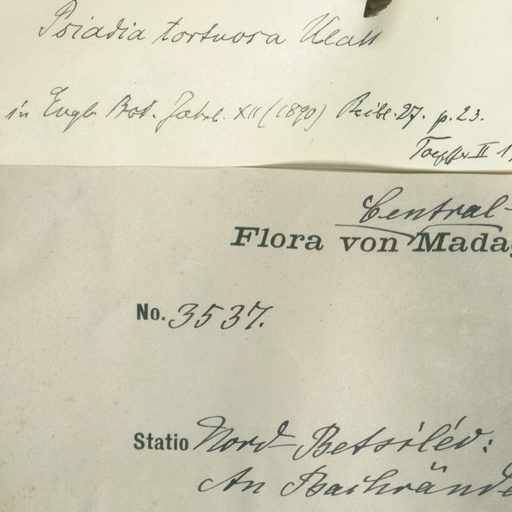 Psiadia tortuosa Klatt
in Engl. Bot. Jahrb. XII (1890) Beibl. 27. p. 23.
II 1
Central-
Flora von Madag
No. 3537.
Statio Nord-Betsiléo:
An Bachrände